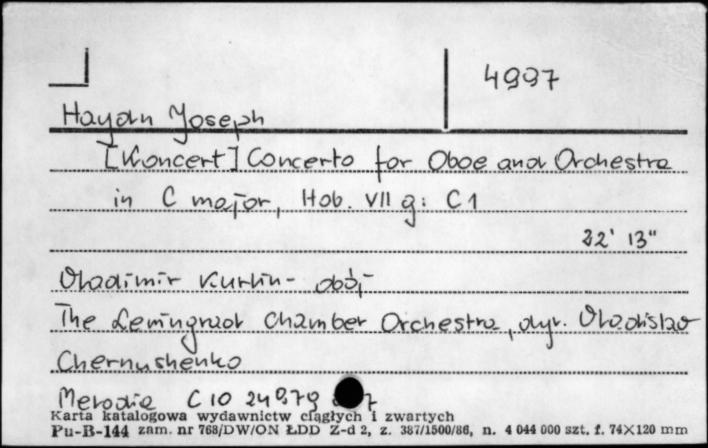 4997
Haydn Joseph
[Koncert] Concerto for Oboe and Orchestra
in C major, Hob. VII g: C1
22' 13"
Vladimir Kurlin - obój
The Leningrad Chamber Orchestra, dyr. Vladislav
Chernushenko
Melodia C 10 24979 7
Karta katalogowa wydawnictw ciągłych i zwartych
Pu-B-144 zam. nr 768/DW/ON ŁDD Z-d 2, z. 387/1500/86, n. 4 044 000 szt. f. 74×120 mm